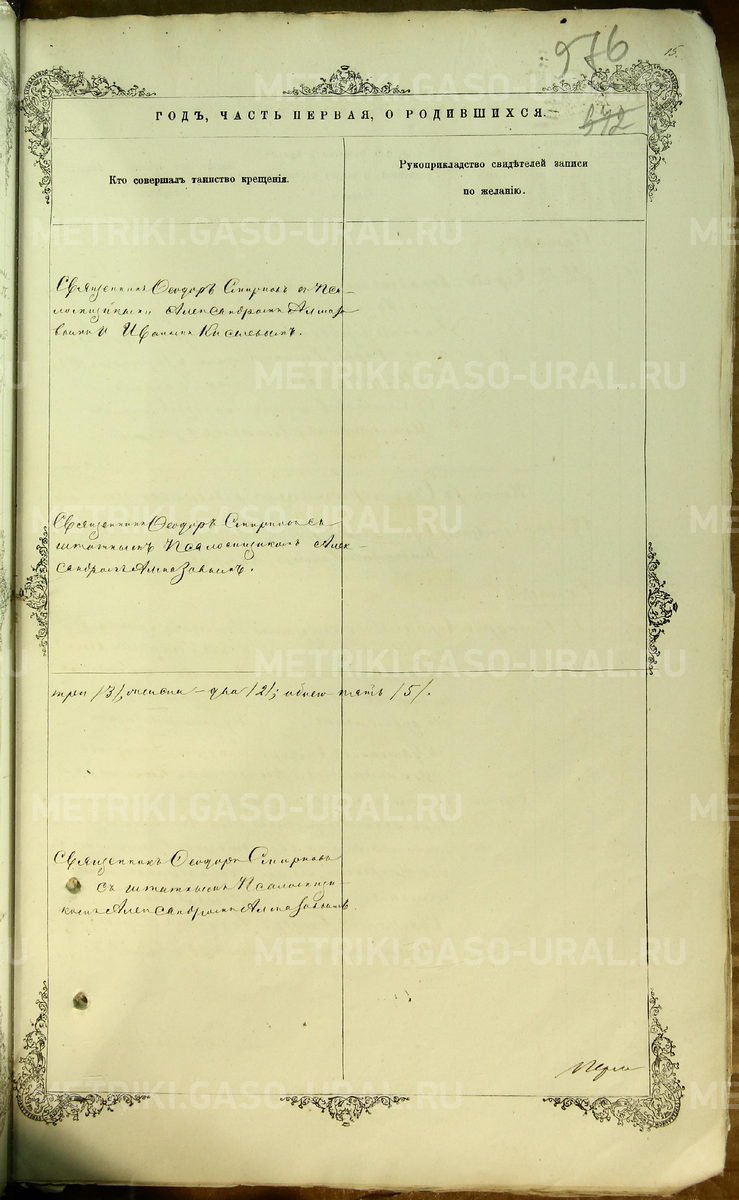 976
15.
372
ГОДЪ, ЧАСТЬ ПЕРВАЯ, О РОДИВШИХСЯ.
Кто совершалъ таинство крещенія.
Рукоприкладство свидѣтелей записи
по желанію.
Священникъ Ѳеодоръ Смирновъ съ Пса-
ломщиками Александромъ Алмазо
вымъ и Иваномъ Киселевымъ.
Священникъ Ѳеодоръ Смирновъ съ
штатнымъ Псаломщикомъ Алек-
сандромъ Алмазовымъ.
три /3/, женска – два /2/; обоего пять /5/.
Священникъ Ѳеодоръ Смирновъ
съ штатнымъ Псаломщи-
комъ Александромъ Алмазовымъ
METRIKI.GASO-URAL.RU